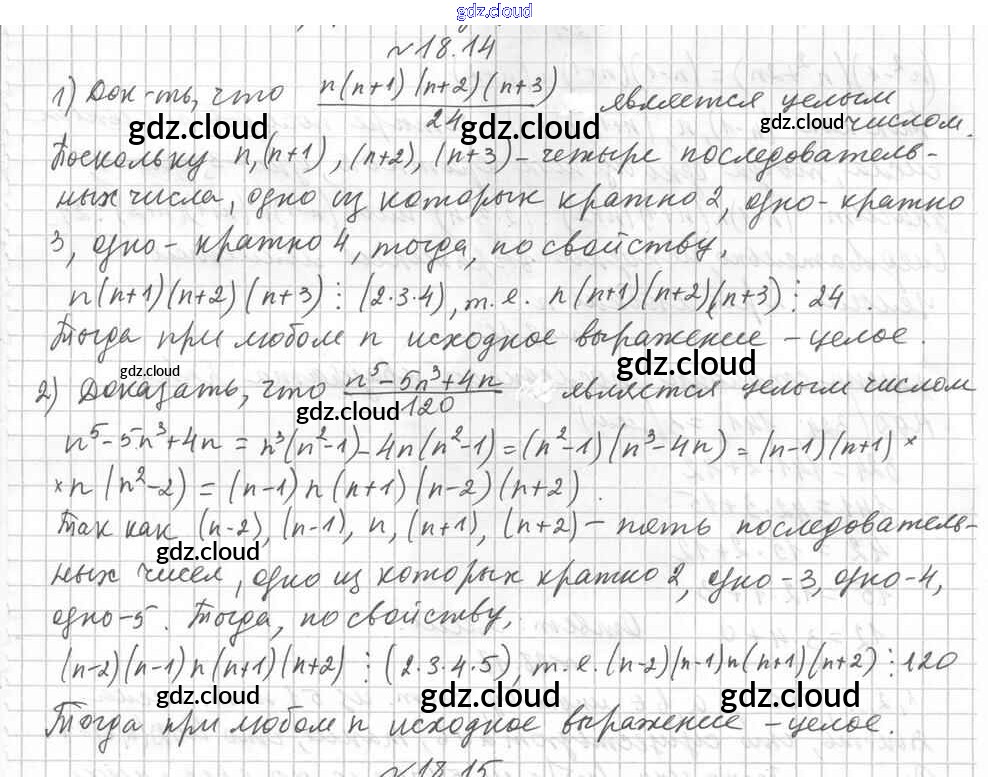 gdz.cloud
№18.14
1) Док-ть, что n(n+1)(n+2)(n+3)/24 является целым
gdz.cloud gdz.cloud gdz.cloud числом.
Поскольку n, (n+1), (n+2), (n+3) – четыре последователь-
ных числа, одно из которых кратно 2, одно - кратно
3, одно - кратно 4, тогда, по свойству,
n(n+1)(n+2)(n+3) ⋮ (2·3·4), т.е. n(n+1)(n+2)(n+3) ⋮ 24.
Тогда при любом n исходное выражение – целое.
gdz.cloud gdz.cloud
2) Доказать, что n⁵-5n³+4n/120 является целым числом
gdz.cloud gdz.cloud
n⁵-5n³+4n = n³(n²-1)-4n(n²-1) = (n²-1)(n³-4n) = (n-1)(n+1)×
×n(n²-2) = (n-1)n(n+1)(n-2)(n+2).
Так как (n-2), (n-1), n, (n+1), (n+2) – пять последователь-
gdz.cloud gdz.cloud
ных чисел, одно из которых кратно 2, одно-3, одно-4,
одно-5. Тогда, по свойству,
(n-2)(n-1)n(n+1)(n+2) ⋮ (2·3·4·5), т.е. (n-2)(n-1)n(n+1)(n+2) ⋮ 120
gdz.cloud gdz.cloud gdz.cloud
Тогда при любом n исходное выражение – целое.
№18.15